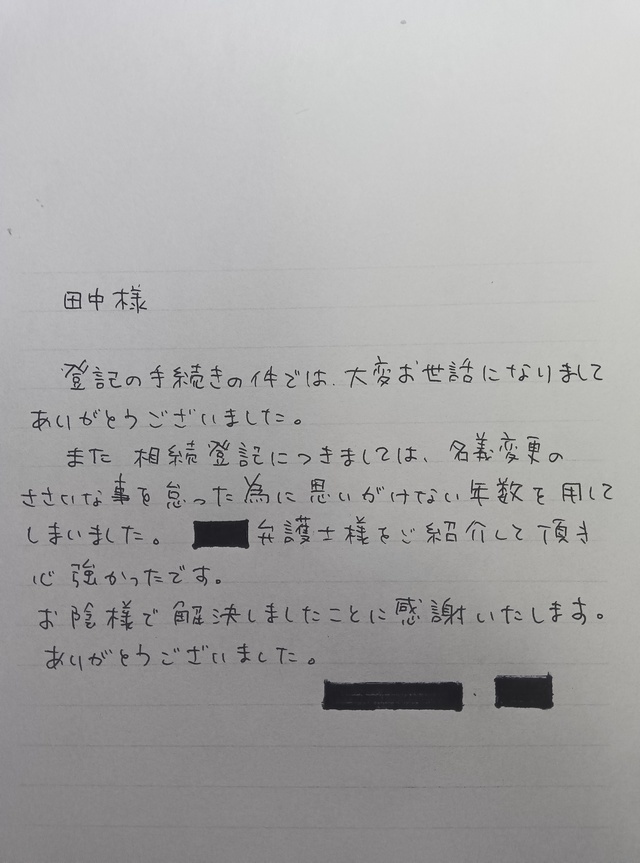 田中様
登記の手続きの件では、大変お世話になりまして
ありがとうございました。
また 相続登記につきましては、名義変更の
ささいな事を怠った為に思いがけない年数を用して
しまいました。 弁護士様をご紹介して頂き
心強かったです。
お陰様で解決しましたことに感謝いたします。
ありがとうございました。